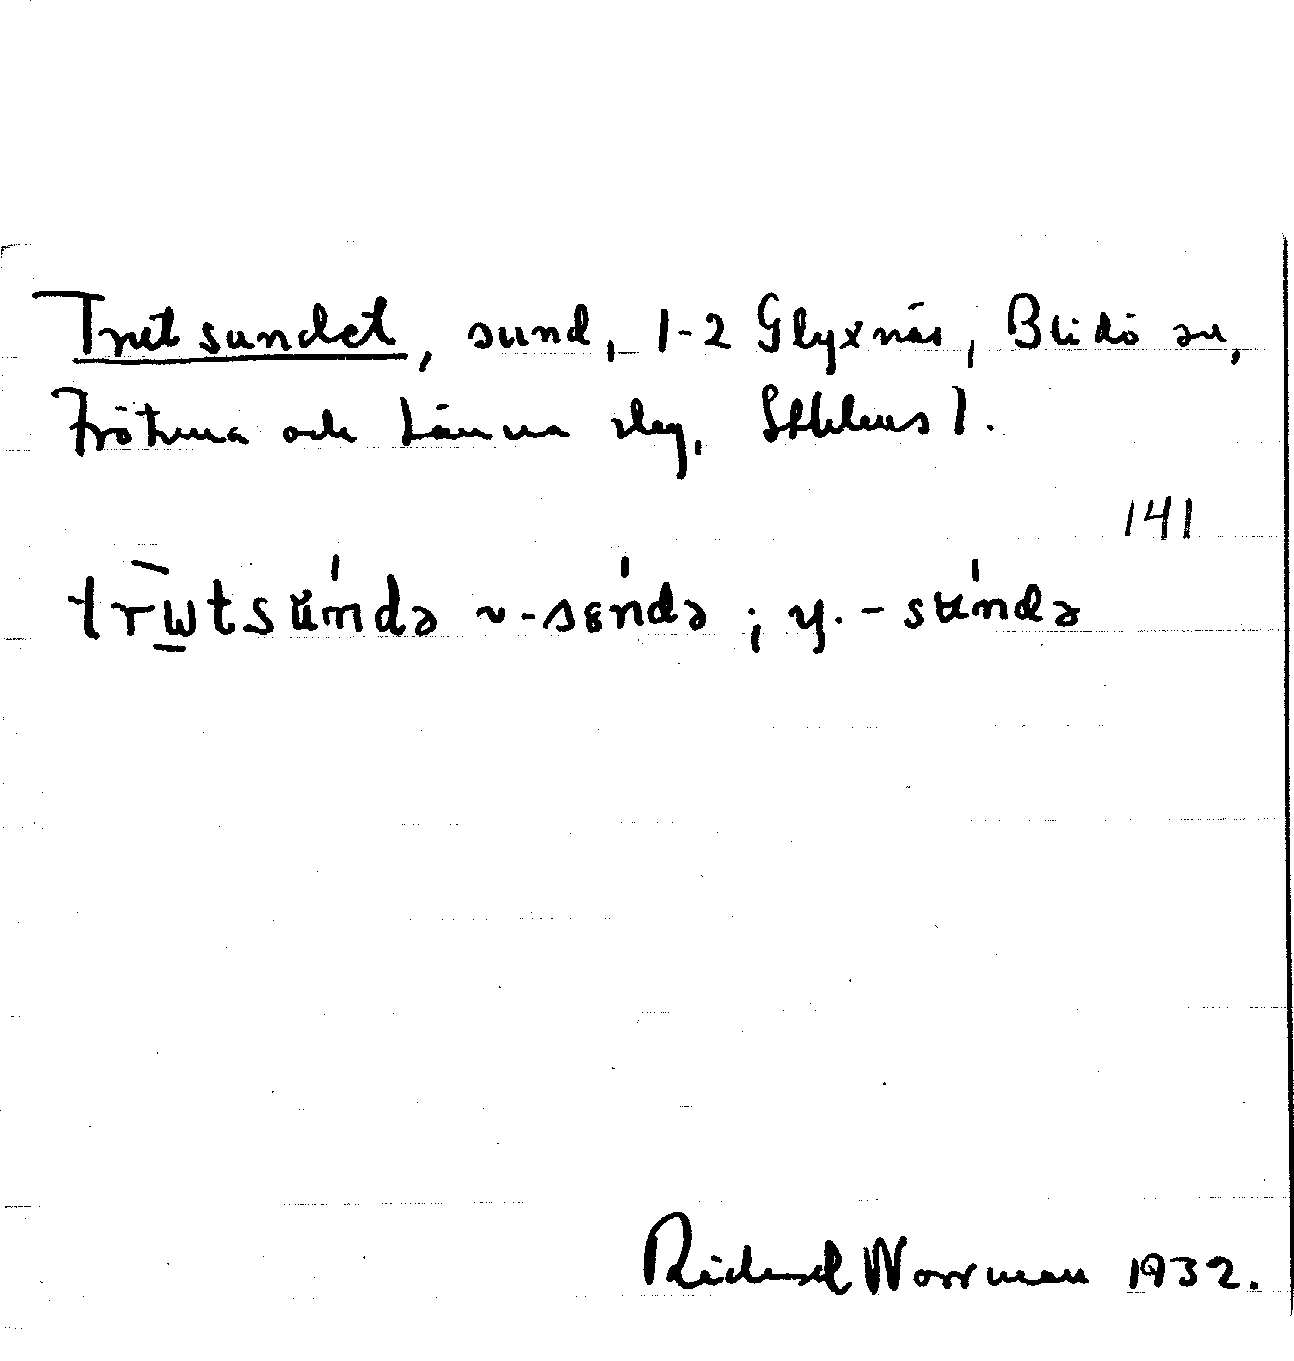 Trutsundet, sund, 1-2 Glyxnäs, Blidö sn,
Frötuna och Länna slg, Sthlms l.
141
trùtsún̄də ~ -sɞńdə ; y. - sʉńdə
Richard Norrman 1932.